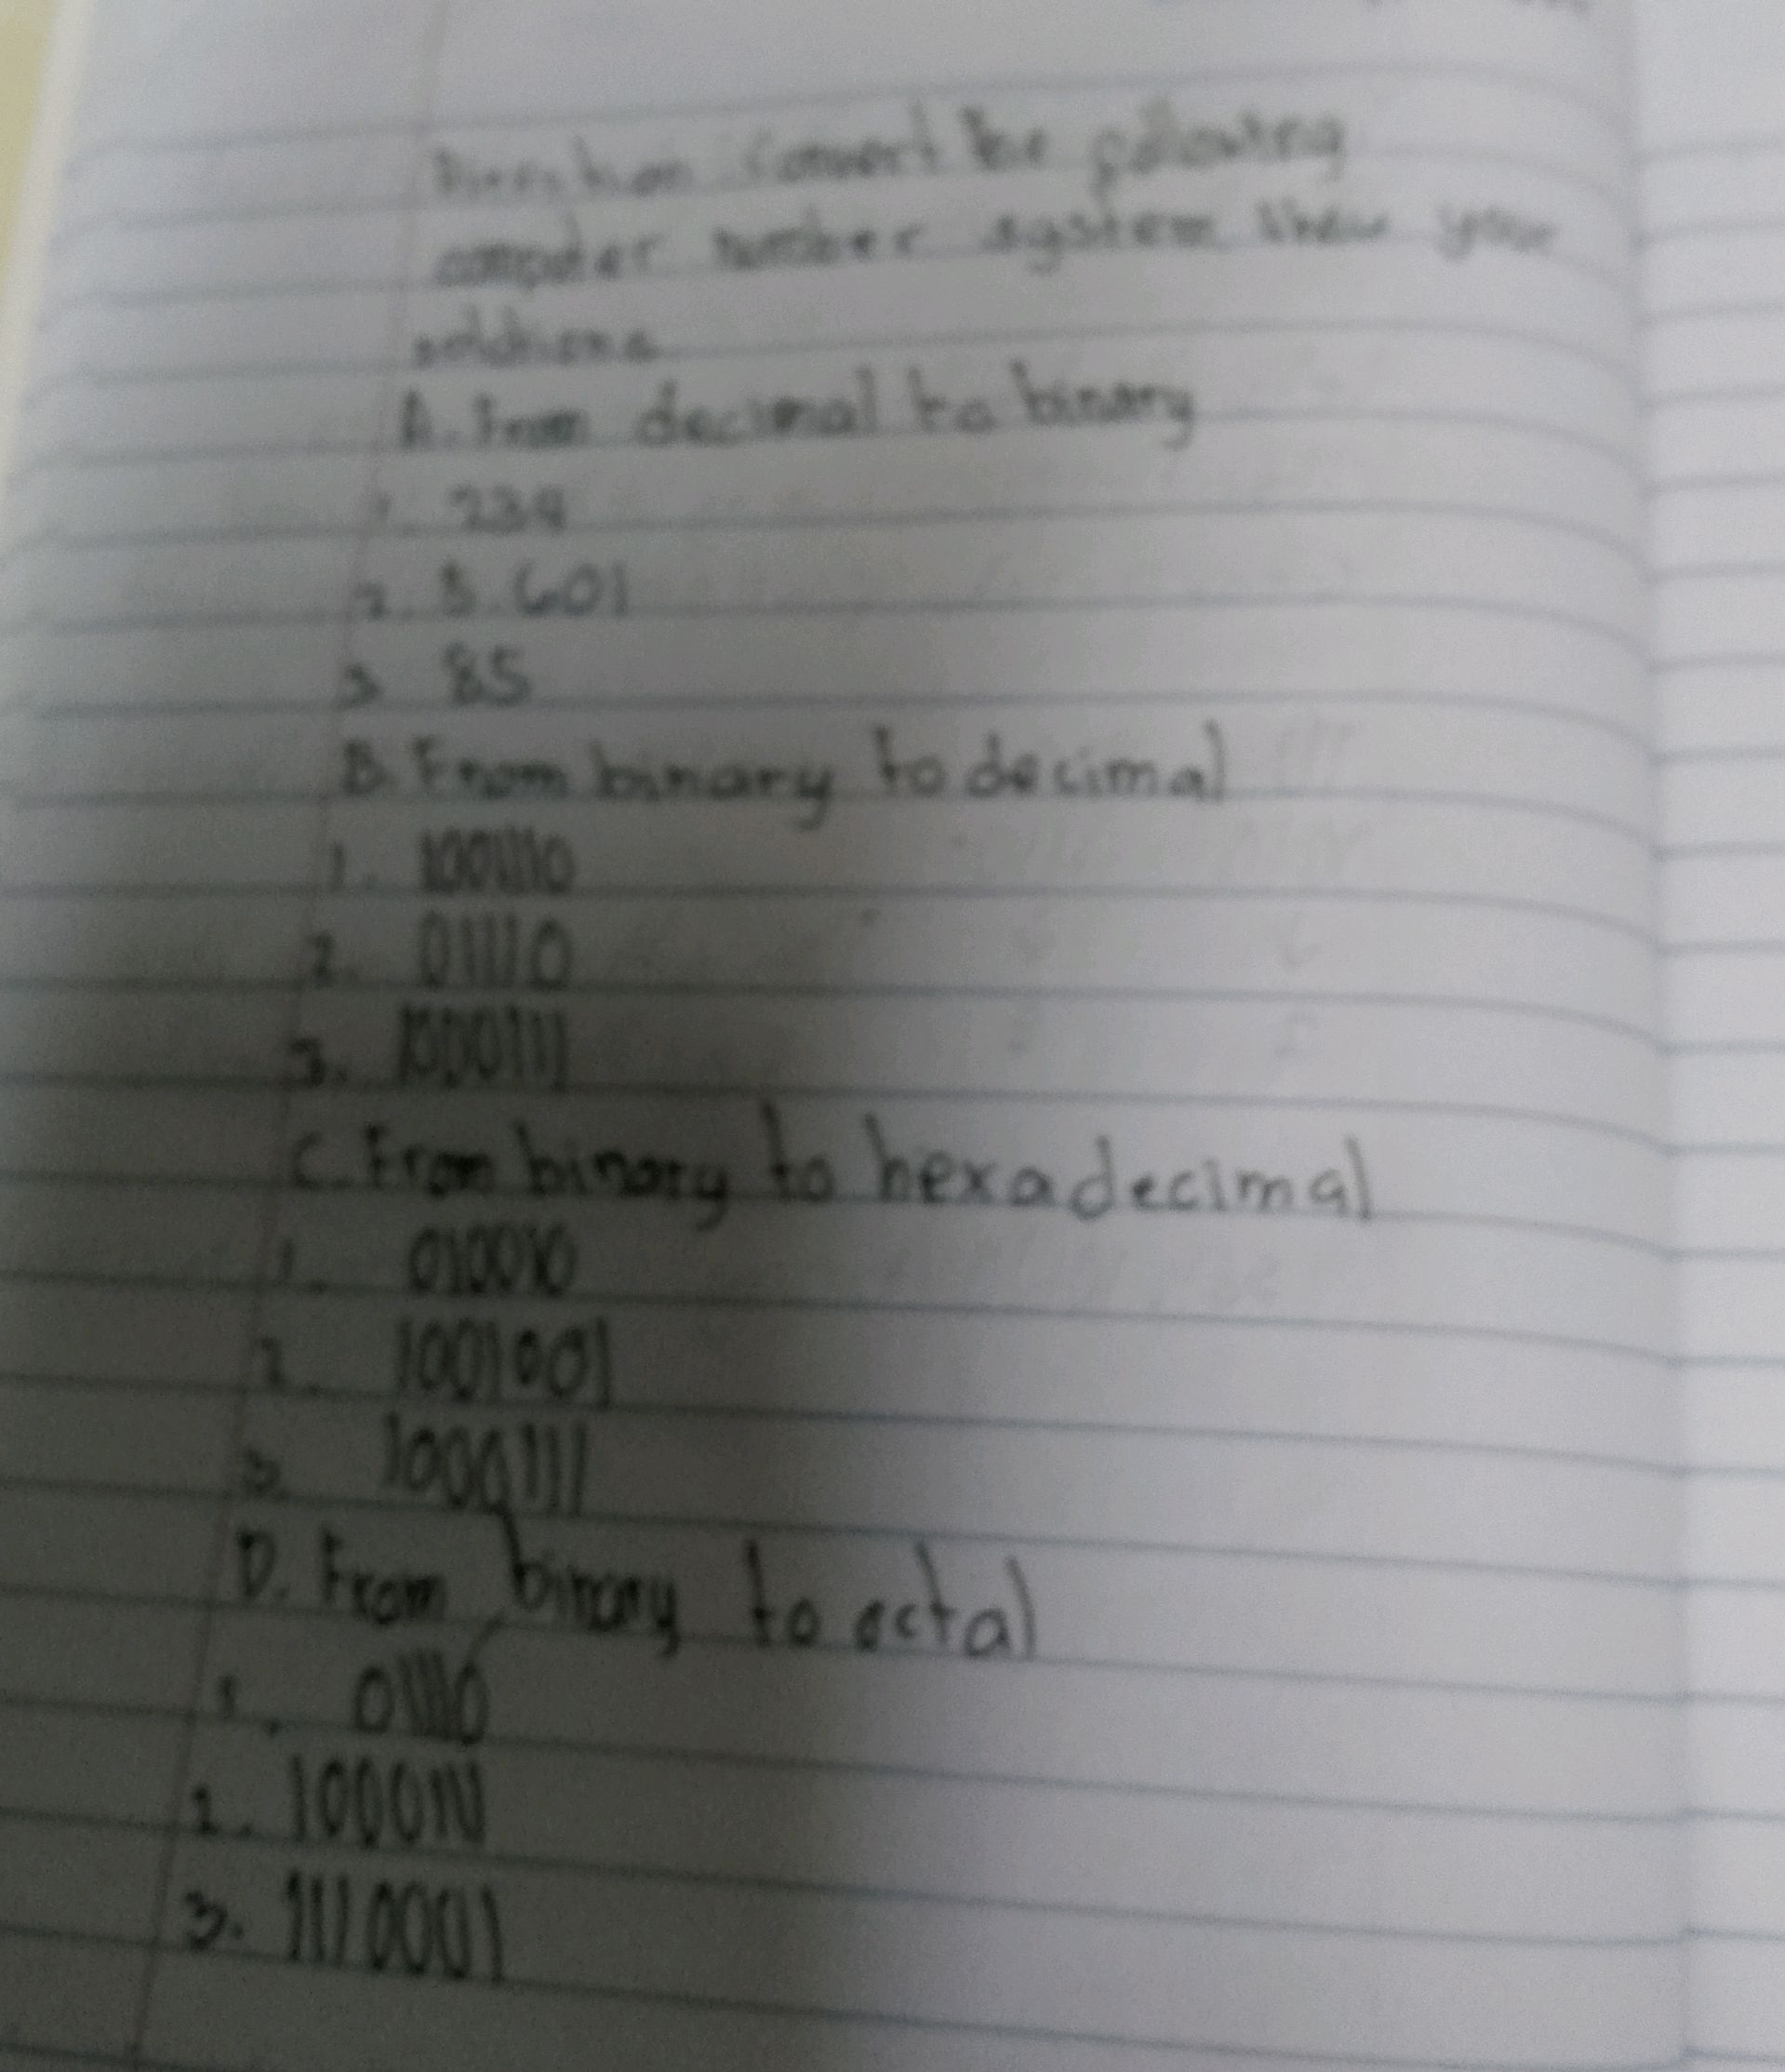 Direction Convert the following
computer number system show your
solutions
A. From decimal to binary
1. 234
2. 3.601
3 85
B. From binary to decimal
1. 1001110
2. 01110
3. 1000111
C. From binary to hexadecimal
1. 010010
2. 1001001
3. 1000111
D. From binary to octal
1. 01110
2. 1000111
3. 1110001